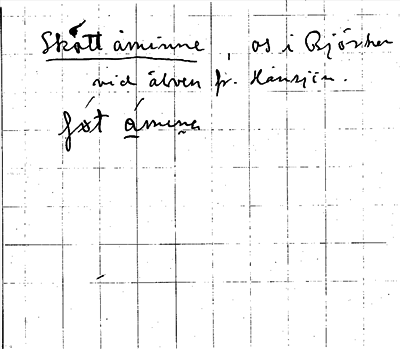 Skått åminne, os i Björsken
vid älven fr. Hansjön.
fɔ́t ǻmine